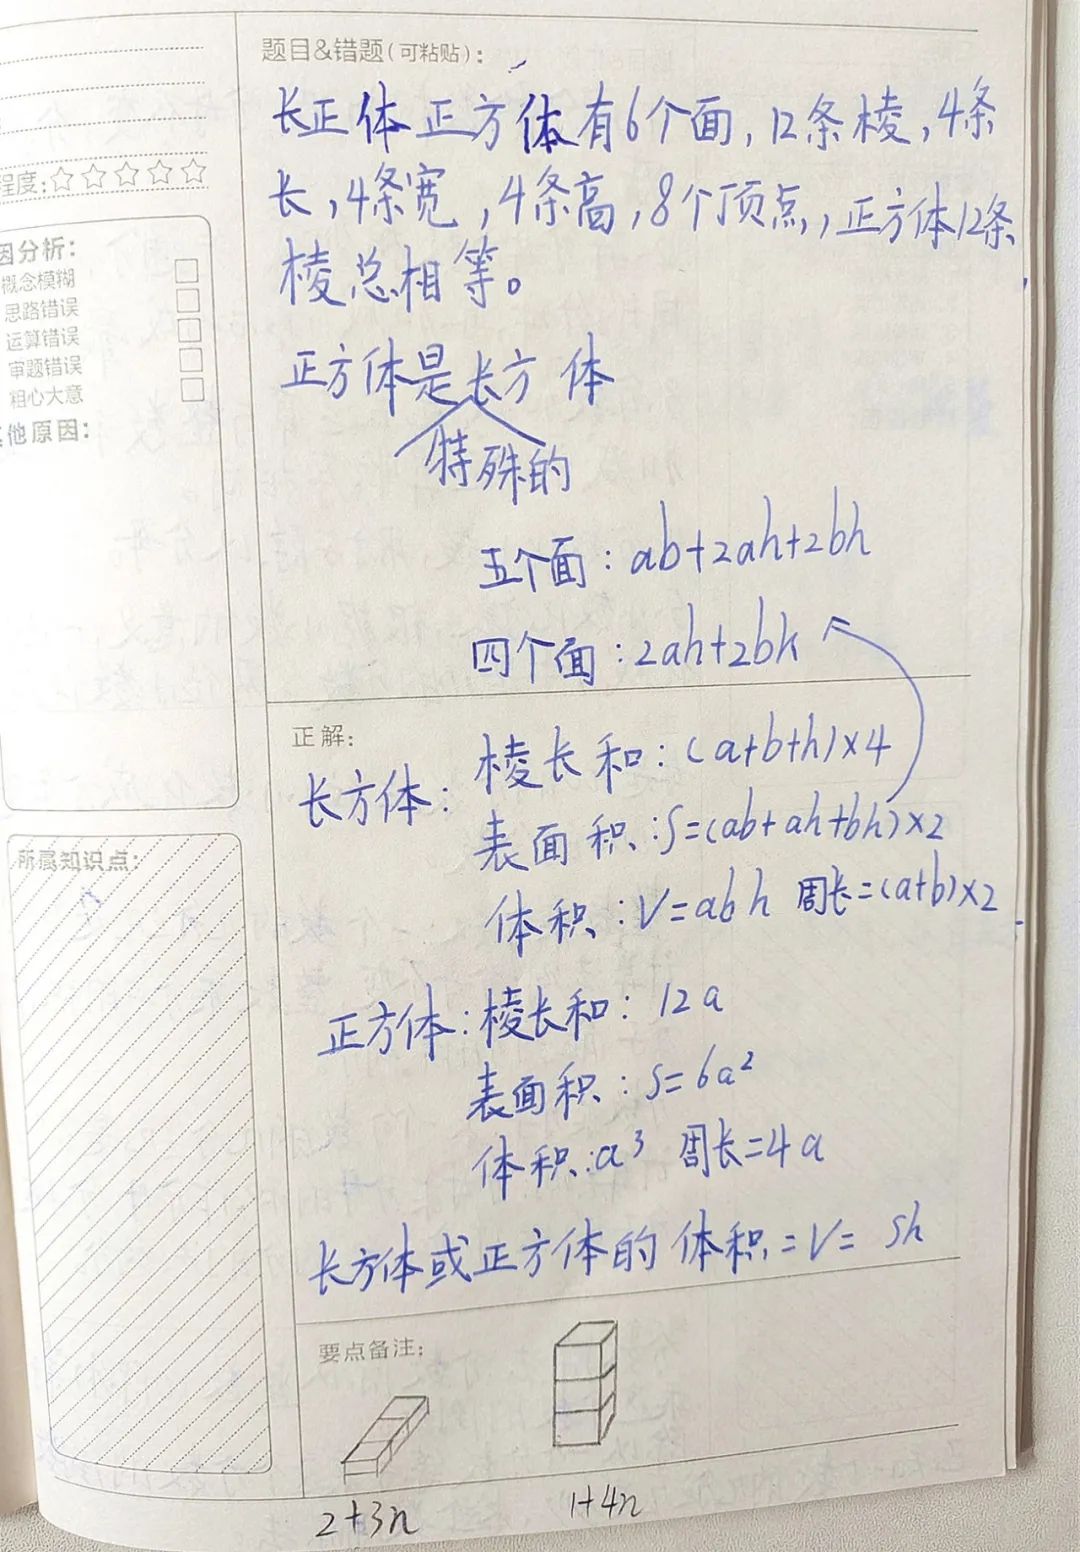 题目&错题(可粘贴):
长正体正方体有6个面,12条棱,4条
长,4条宽,4条高,8个顶点,正方体12条
棱总相等。
正方体是长方体
特殊的
五个面:ab+2ah+2bh
四个面:2ah+2bh
程度:☆☆☆☆☆
因分析:
概念模糊
思路错误
运算错误
审题错误
粗心大意
其他原因:
正解:
长方体:
棱长和:(a+b+h)×4
表面积:S=(ab+ah+bh)×2
体积:V=abh 周长=(a+b)×2
正方体:棱长和:12a
表面积:S=6a²
体积:a³ 周长=4a
长方体或正方体的体积=V=Sh
所属知识点:
要点备注:
2+3n
1+4n